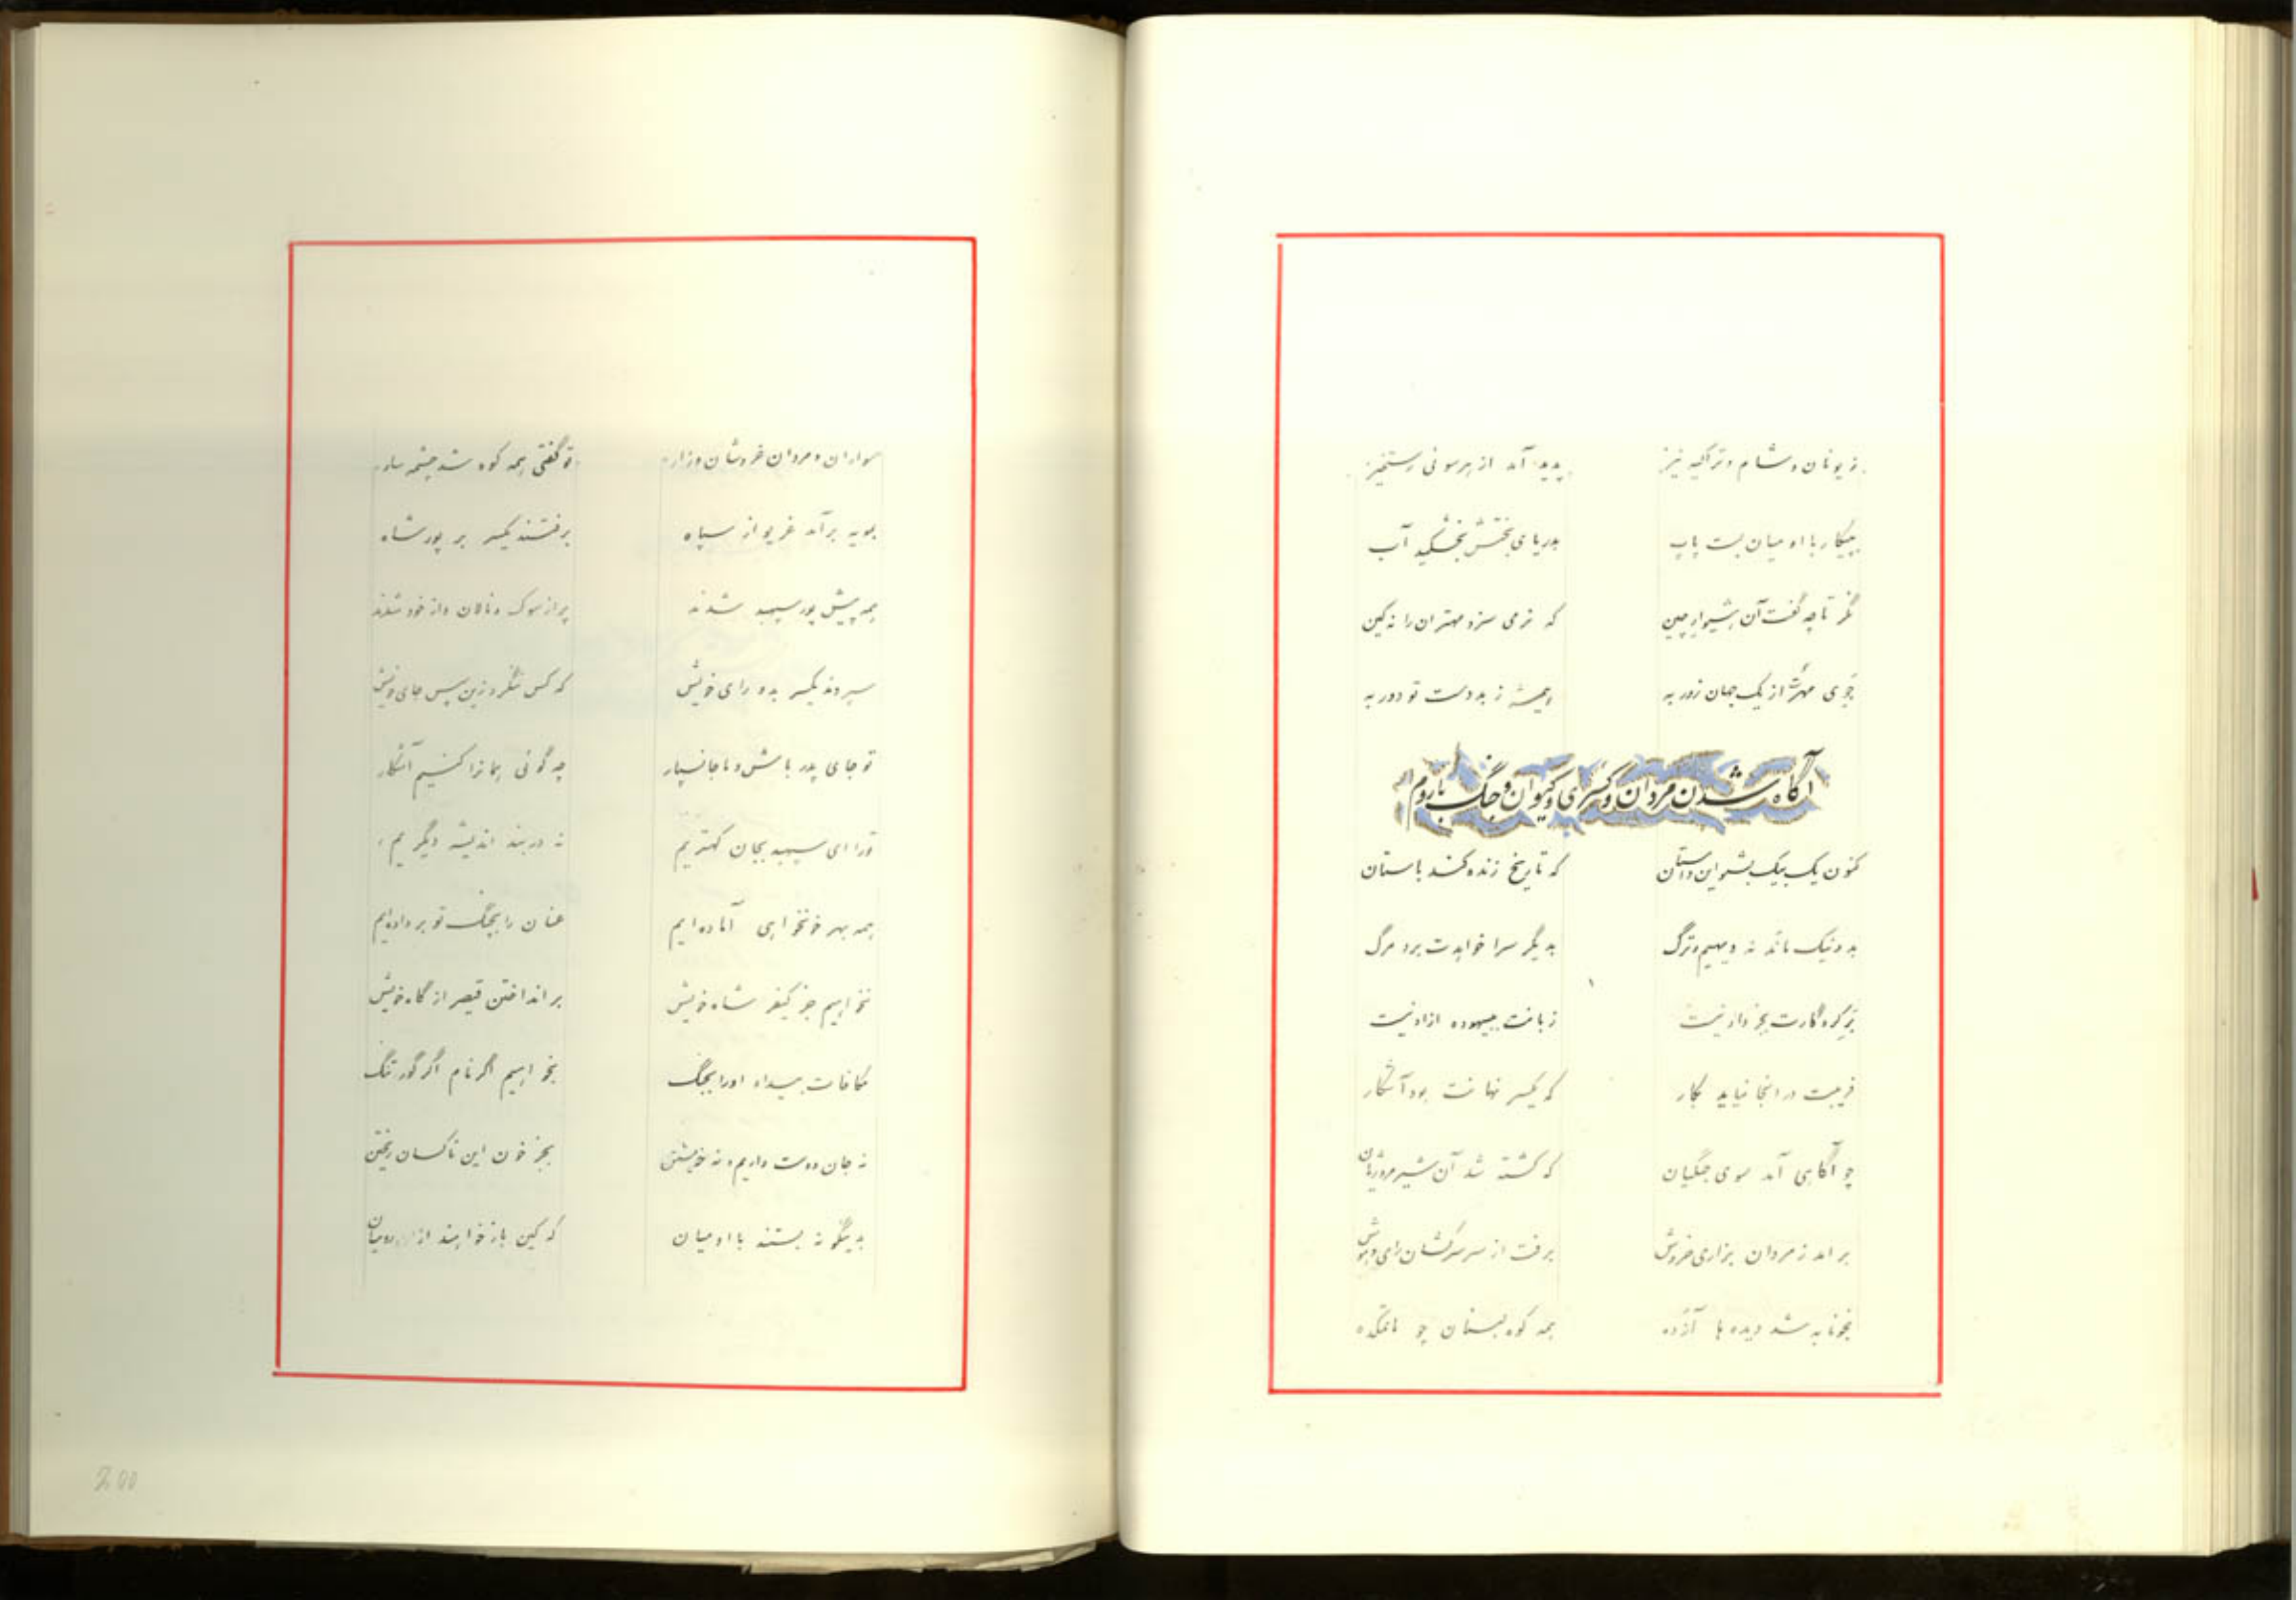 ز یونان و شام و تراکیه نیز پدید آمد از هر سوئی رستخیز
به پیکار با او میان بست پاپ بدریای بخشش بخشکید آب
نگر تا چه گفت آن هشیوار چین که نرمی سزد مهتران را نه کین
جوی مهرت از یک جهان زور به همیشه ز بد دست تو دور به
آگاه شدن مردان و کسری و کیوان و جنگ با روم
کنون یک بیک بشنو این داستان که تاریخ زنده کند باستان
بد و نیک ماند نه دیهیم و ترگ بدیگر سرا خواهدت برد مرگ
کارت بجز داد نیست زبانت بیهوده ازاد نیست
فریبت در انجا نیاید بکار که یکسر نهانت بود آشکار
چو آگاهی آمد سوی جنگیان که کشته شد آن شیر مرد ژیان
بر امد ز مردان بزاری خروش برفت از سر سرکشان رای و هوش
بخونابه شد دیده ها آژده همه کوهستان چو ماتمکده
سواران و مردان خروشان و زار تو گفتی همه کوه شد چشمه سار
بمویه برآمد غریو از سپاه برفتند یکسر بر پور شاه
همه پیش پور سپهبد شدند پر از سوک و نالان و از خود شدند
سپردند یکسر بدو رای خویش که کس ننگرد زین سپس جای خویش
تو جای پدر باش و ما جانسپار چه گوئی همانرا کنیم آشکار
تو را ای سپهبد بجان کهتریم نه در بند اندیشه دیگریم
همه بهر خونخواهی آماده‌ایم عنان را بچنگ تو بر داده‌ایم
نخواهیم جز کیفر شاه خویش بر انداختن قیصر از گاه خویش
مکافات بیداد او را بجنگ بخواهیم اگر نام اگر گور تنگ
نه جان دوست داریم و نه خویشتن بجز خون این ناکسان ریختن
بدینگونه بستند با او میان که کین باز خواهند از رومیان
200